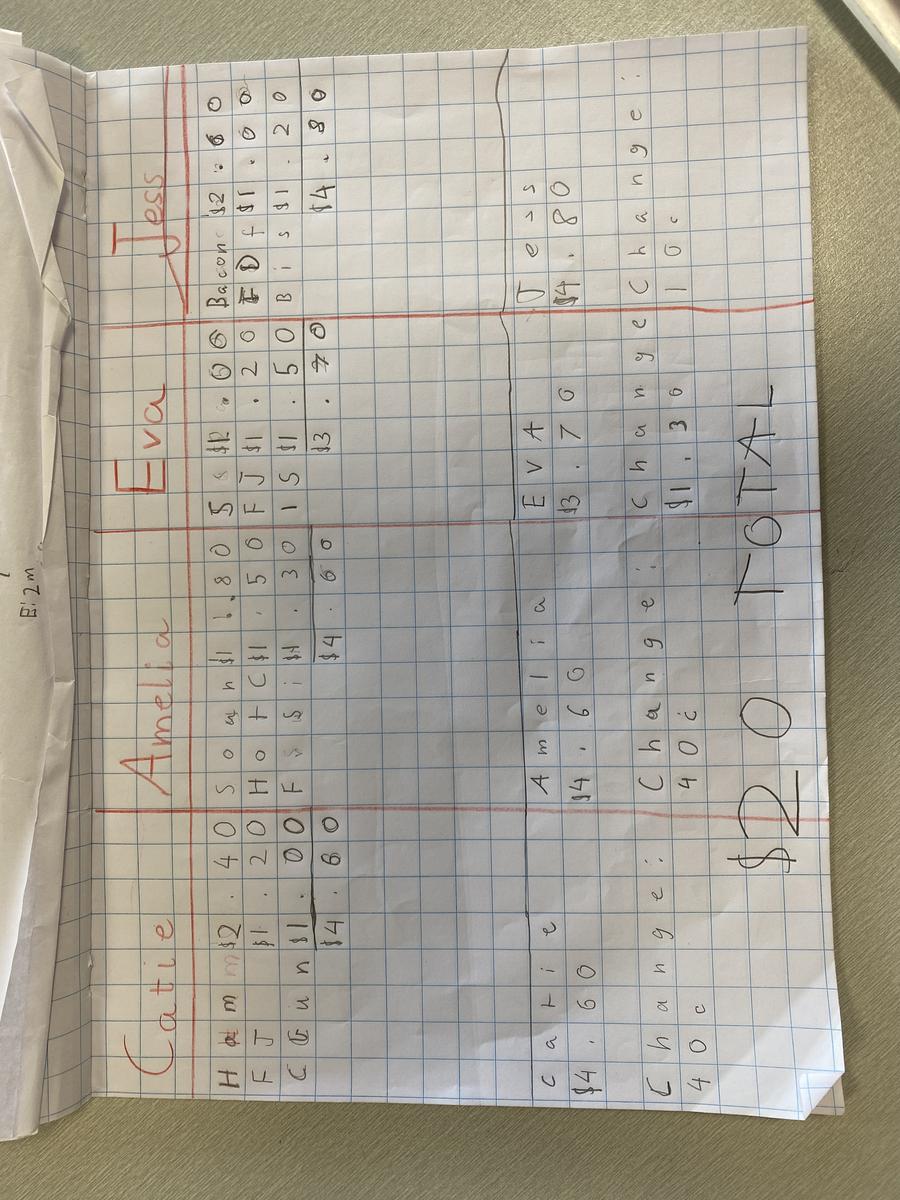 Catie
Hmm $2.40
FJ $1.20
C un $1.00
$4.60
Amelia
$1.80
Hot C $1.50
$1.30
$4.60
Eva
FJ $1.20
1S $1.50
$3.70
Jess
Bacon $2.60
$1.00
Bis $1.20
$4.80
Catie
$4.60
Change:
40c
Amelia
$4.60
Change:
40c
EVA
$3.70
Change
$1.30
Jess
$4.80
Change:
10c
$20 TOTAL
E: 2m